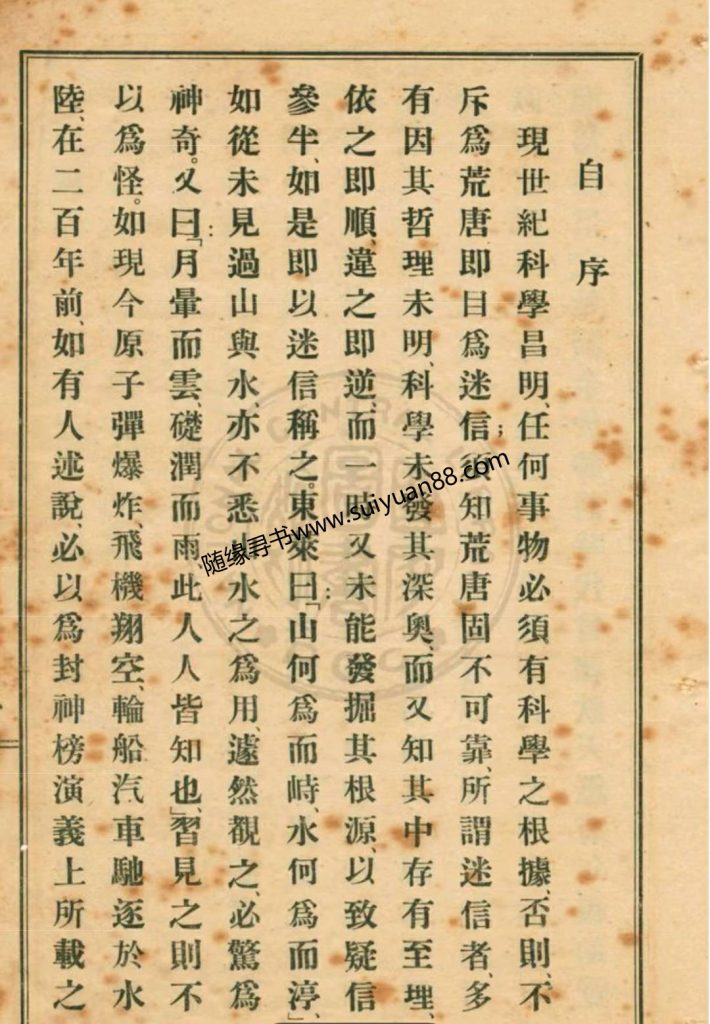 自序
現世紀科學昌明、任何事物必須有科學之根據、否則、不
斥爲荒唐即目爲迷信；須知荒唐固不可靠、所謂迷信者、多
有因其哲理未明、科學未發其深奧、而又知其中存有至理、
依之即順、違之即逆、而一時又未能發掘其根源、以致疑信
參半、如是即以迷信稱之。東萊曰：「山何爲而峙、水何爲而渟、」
如從未見過山與水、亦不悉山水之爲用、遽然覩之、必驚爲
神奇。又曰：「月暈而雲、礎潤而雨此人人皆知也、」習見之則不
以爲怪。如現今原子彈爆炸、飛機翔空、輪船汽車馳逐於水
陸、在二百年前、如有人述說、必以爲封神榜演義上所載之
随缘寻书www.suiyuan88.com